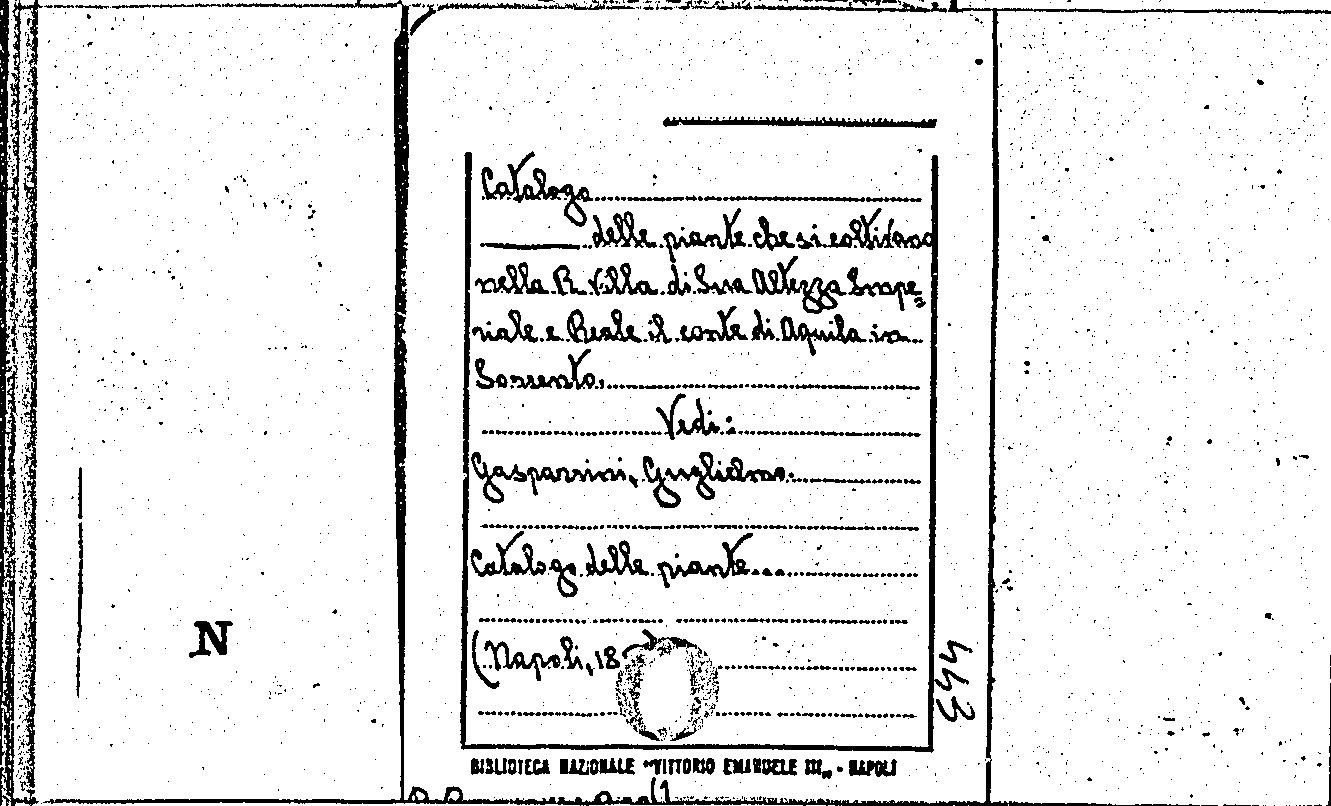 Catalogo
delle piante che si coltivano
nella R. Villa di Sua Altezza Impe=
riale e Reale il conte di Aquila in
Sorrento.
Vedi:
Gasparrini, Guglielmo.
Catalogo delle piante...
(Napoli, 18
N
443
BIBLIOTECA NAZIONALE "VITTORIO EMANUELE III„ - NAPOLI